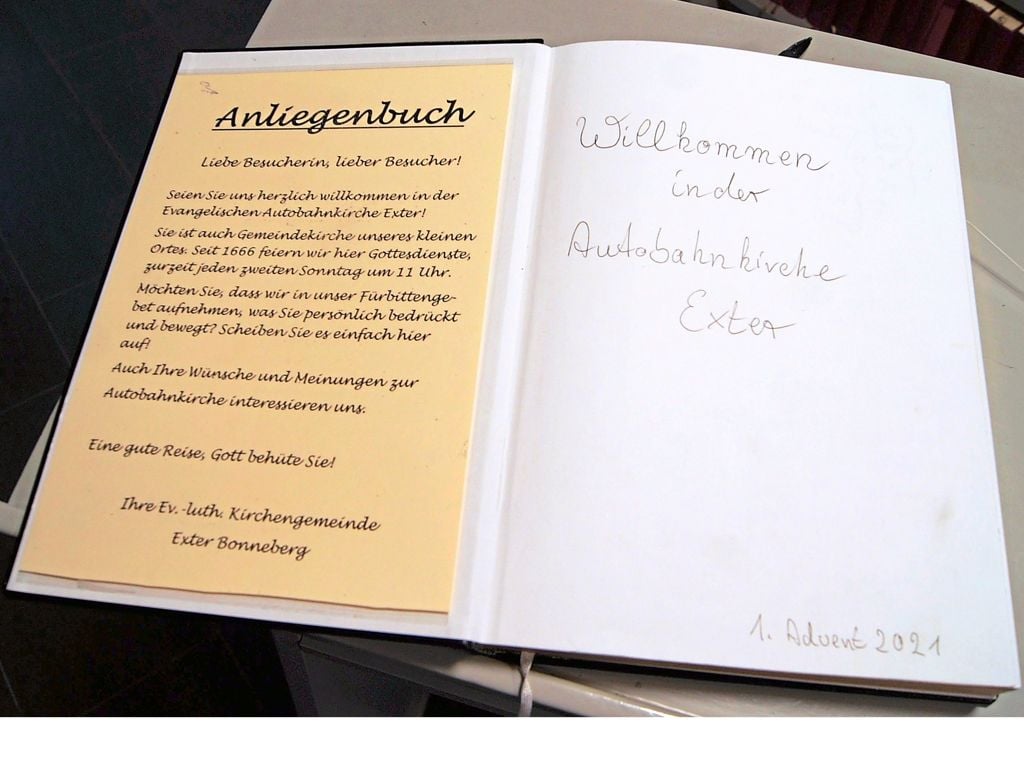 Anliegenbuch
Liebe Besucherin, lieber Besucher!
Seien Sie uns herzlich willkommen in der
Evangelischen Autobahnkirche Exter!
Sie ist auch Gemeindekirche unseres kleinen
Ortes. Seit 1666 feiern wir hier Gottesdienste,
zurzeit jeden zweiten Sonntag um 11 Uhr.
Möchten Sie, dass wir in unser Fürbittenge-
bet aufnehmen, was Sie persönlich bedrückt
und bewegt? Scheiben Sie es einfach hier
auf!
Auch Ihre Wünsche und Meinungen zur
Autobahnkirche interessieren uns.
Eine gute Reise, Gott behüte Sie!
Ihre Ev.-luth. Kirchengemeinde
Exter Bonneberg
Willkommen
in der
Autobahnkirche
Exter
1. Advent 2021